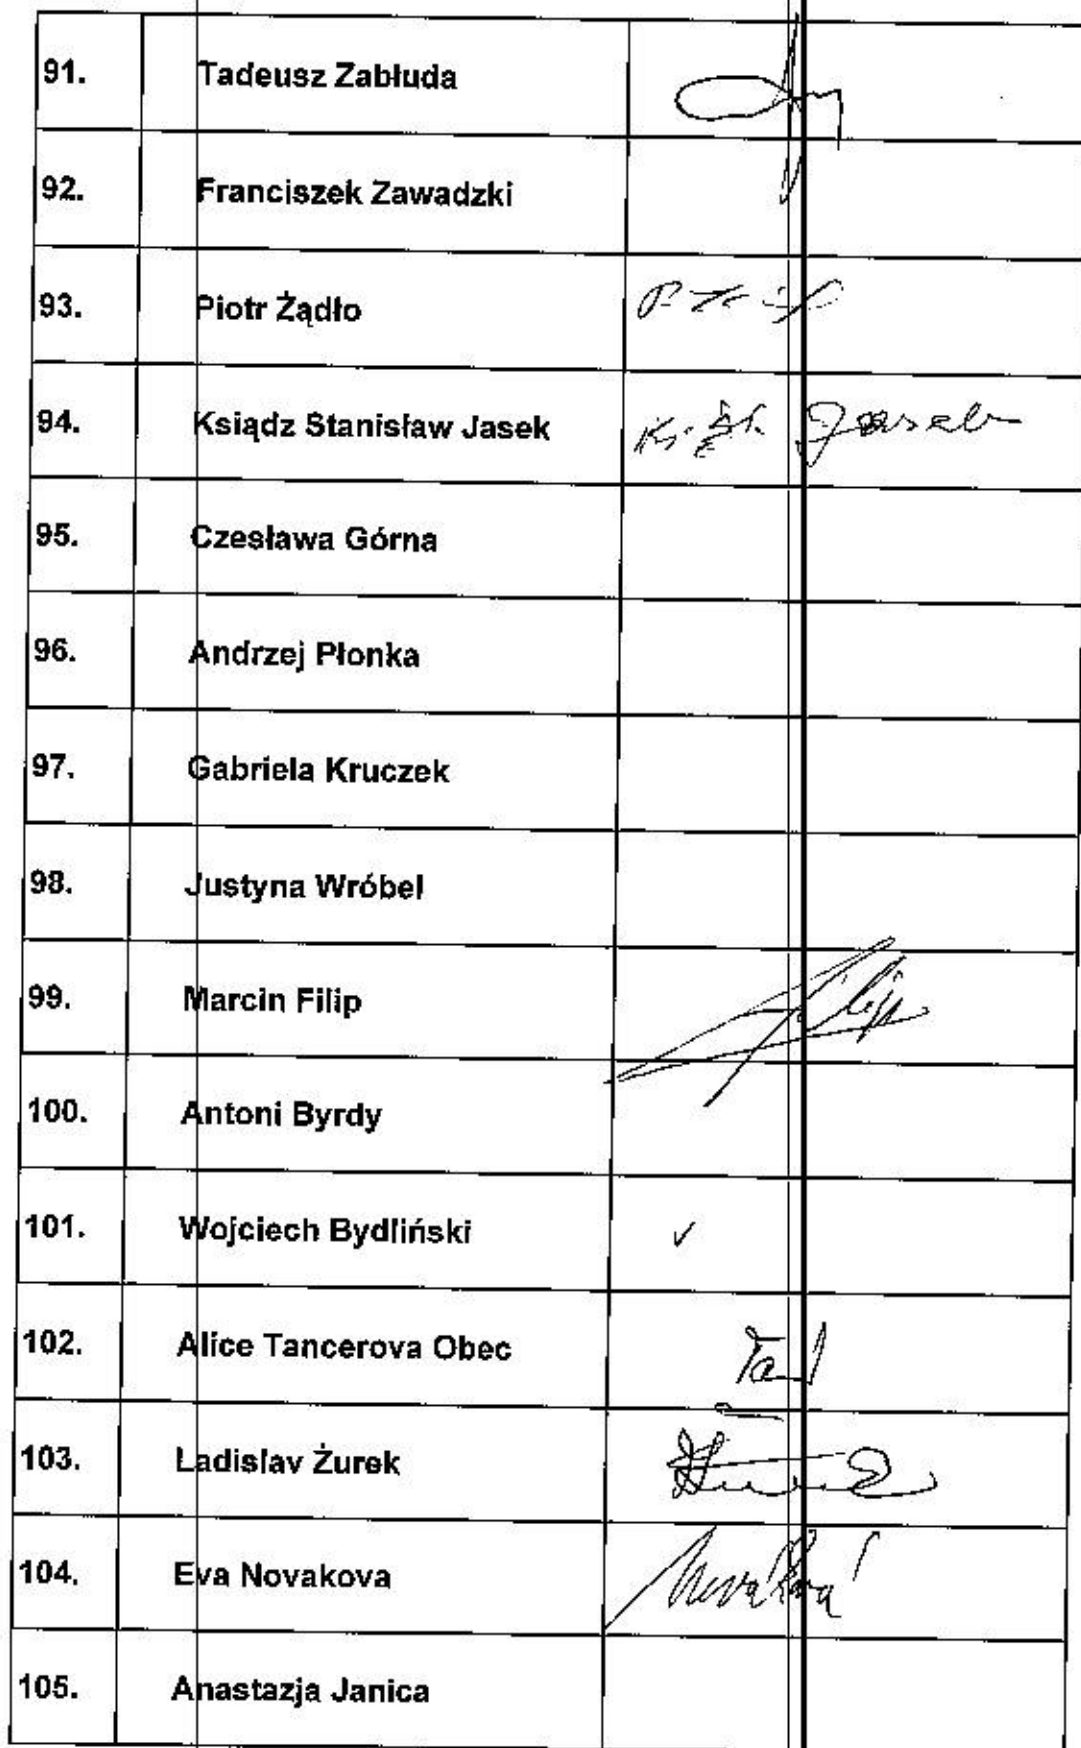 91. Tadeusz Zabłuda
92. Franciszek Zawadzki
93. Piotr Żądło
94. Ksiądz Stanisław Jasek Ks. St. Jasek
95. Czesława Górna
96. Andrzej Płonka
97. Gabriela Kruczek
98. Justyna Wróbel
99. Marcin Filip
100. Antoni Byrdy
101. Wojciech Bydliński ✓
102. Alice Tancerova Obec
103. Ladislav Żurek
104. Eva Novakova Nováková
105. Anastazja Janica